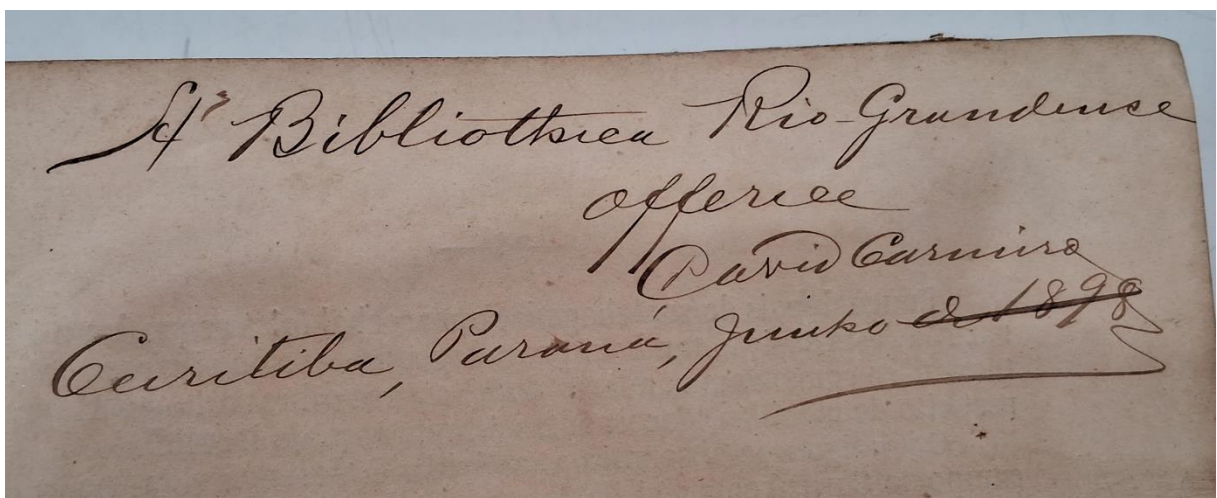 A' Bibliotheca Rio-Grandense
offerece
David Carneiro
Curitiba, Paraná, Junho de 1898